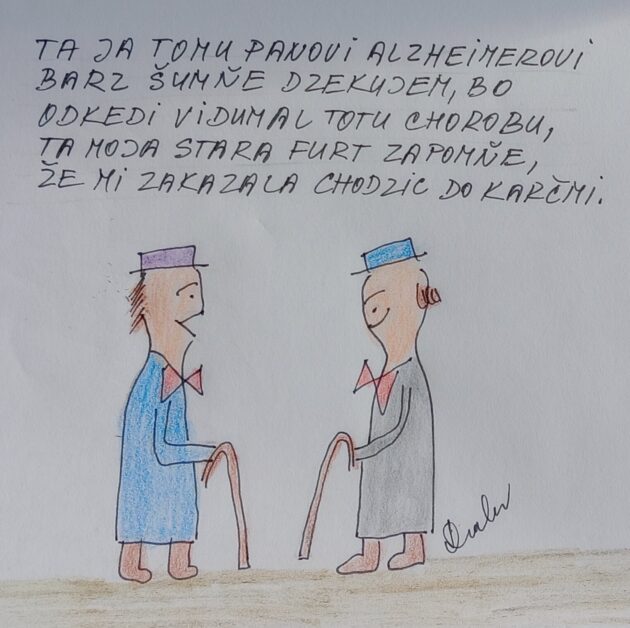 TA JA TOMU PANOVI ALZHEIMEROVI
BARZ ŠUMŇE DZEKUJEM, BO
ODKEDI VIDUMAL TOTU CHOROBU,
TA MOJA STARA FURT ZAPOMŇE,
ŽE MI ZAKAZALA CHODZIC DO KARČMI.